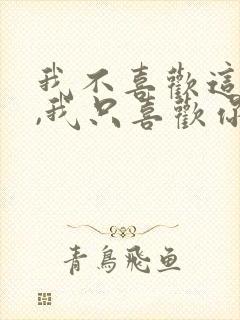 我不喜歡這
,我只喜歡你
青鳥飛魚